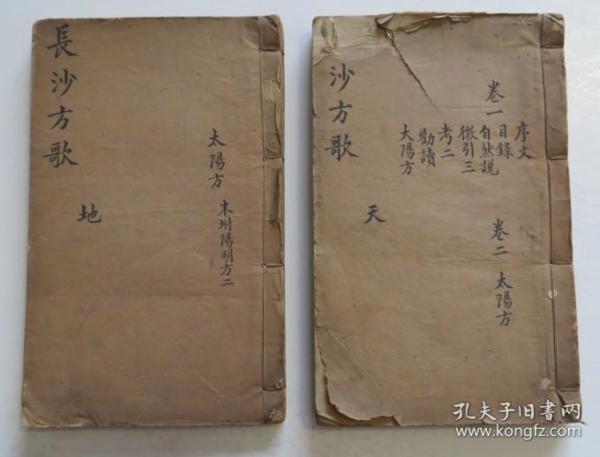 長沙方歌
地
太陽方
末坿陽明方二
沙方歌
天
卷一
序文
目錄
自然説
徵引三
考二
勸讀
太陽方
卷二
太陽方
孔夫子旧书网
www.kongfz.com